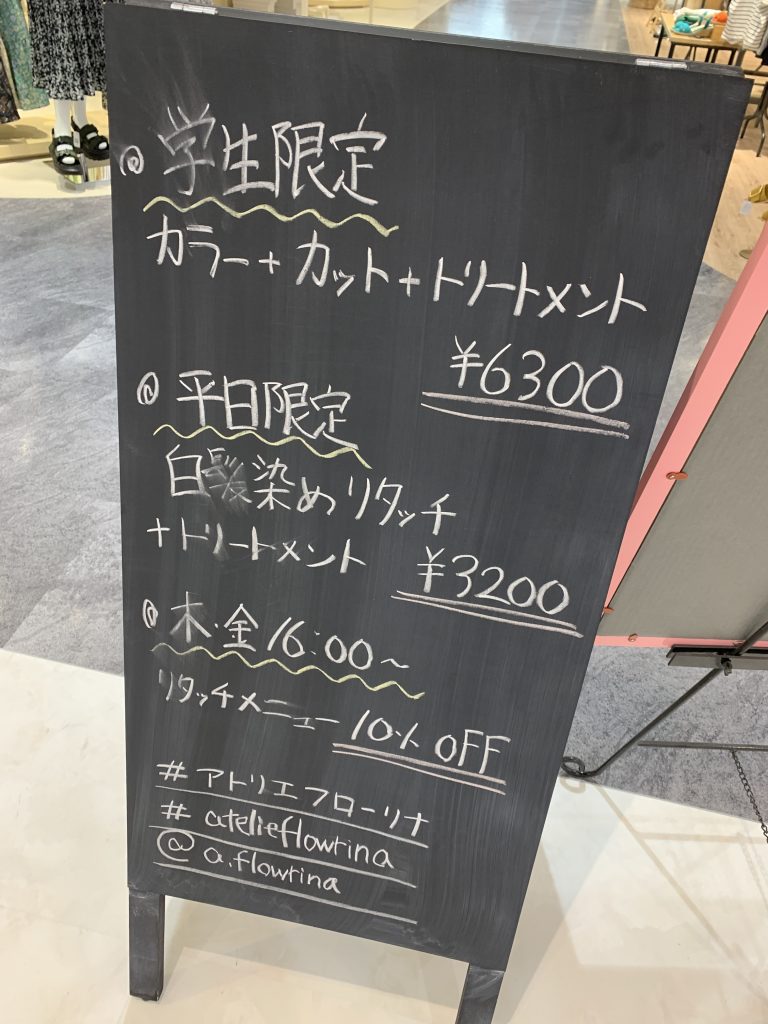 @ 学生限定
カラー+カット+トリートメント
¥6300
@ 平日限定
白髪染めリタッチ
+トリートメント ¥3200
@ 木・金16:00~
リタッチメニュー 10% OFF
#アトリエフローリナ
#atelieflowrina
@a.flowrina